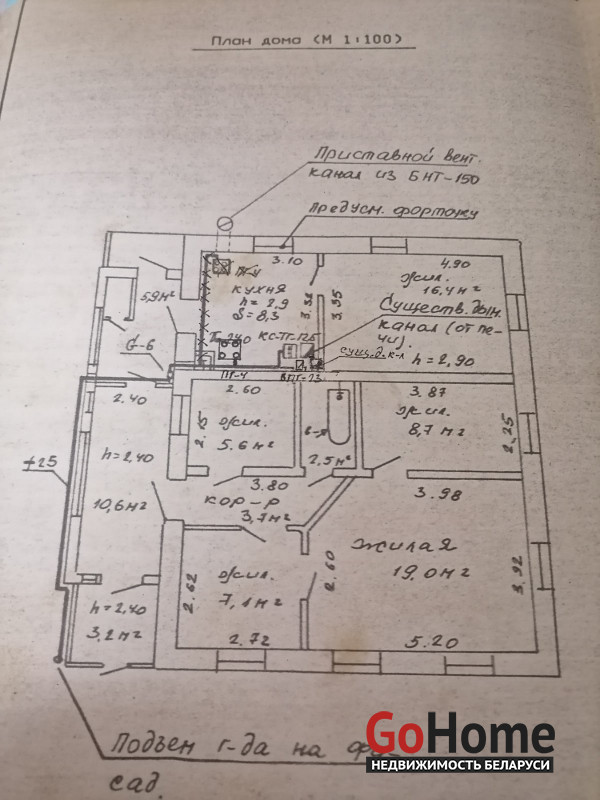 План дома (М 1:100)
Приставной вент.
канал из БНТ-150
Предусм. форточку
3.10
4.90
ПГ-4
жил.
16,4м²
кухня
h = 2,9
S = 8,3
3.35
5,9м²
Существ. дым.
канал (от пе-
чи).
КС-ТГ-12,5
сущ. д. к-л
h = 2,90
G-6
ПГ-4
2.40
2.60
3.87
жил.
5.6м²
жил.
8,7м²
2,25
±25
h=2,40
2,5м²
10,6м²
3.80
3.98
кор-р
3,7м²
жилая
19.0м²
3.92
2.60
2.62
жил.
7,1м²
h=2,40
3,2м²
2.72
5.20
Подъем г-да на фа-
сад.
GoHome
НЕДВИЖИМОСТЬ БЕЛАРУСИ